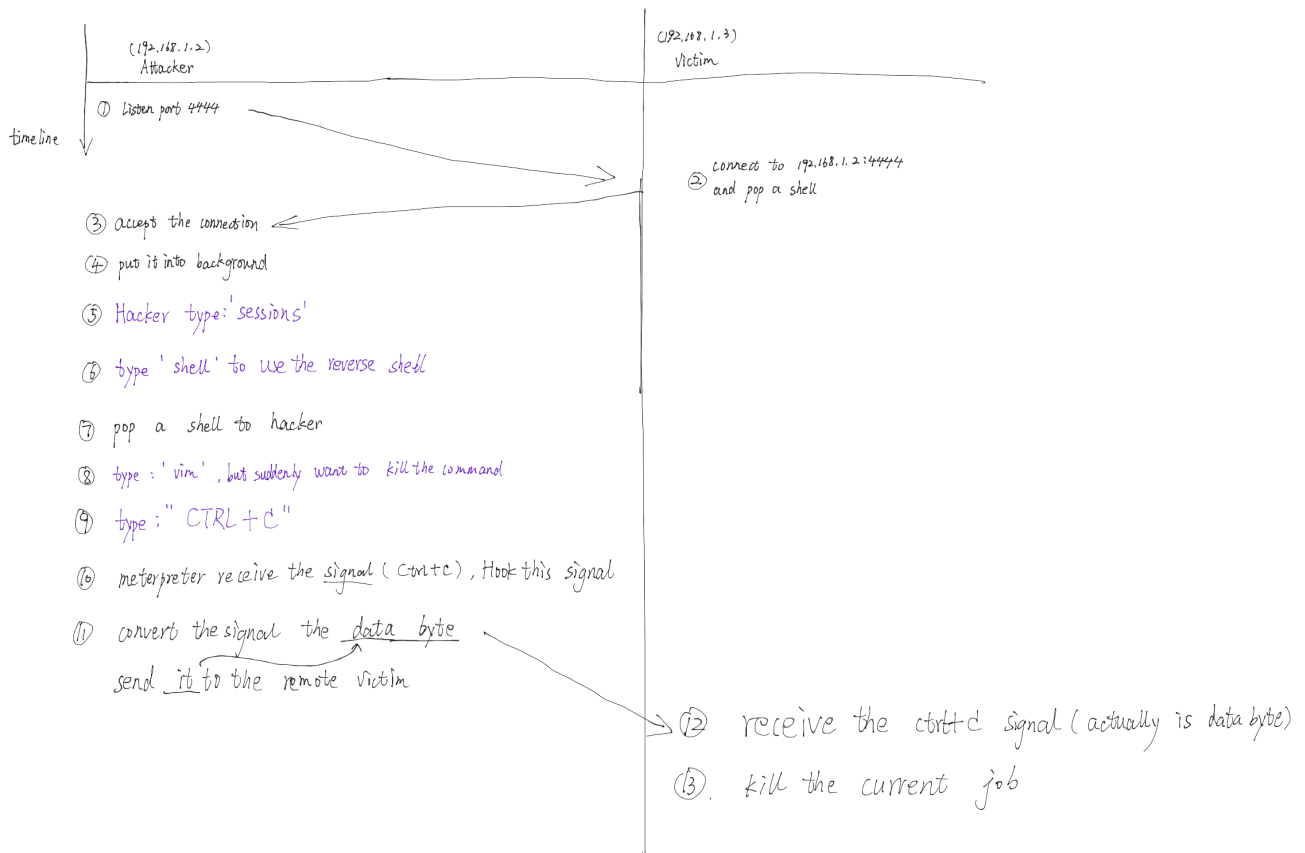 (192.168.1.2)
Attacker
(192.168.1.3)
Victim
① Listen port 4444
timeline
② connect to 192.168.1.2:4444
and pop a shell
③ accept the connection
④ put it into background
⑤ Hacker type:'sessions'
⑥ type 'shell' to use the reverse shell
⑦ pop a shell to hacker
⑧ type : 'vim' , but suddenly want to kill the command
⑨ type : " CTRL + C "
⑩ meterpreter receive the signal ( Ctrl+C ) , Hook this signal
⑪ convert the signal the data byte
send it to the remote victim
⑫ receive the ctrl+c signal ( actually is data byte)
⑬. kill the current job